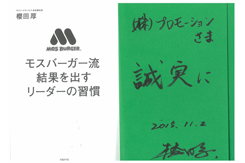 櫻田 厚
MOS BURGER
モスバーガー流
結果を出す
リーダーの習慣
(株)プロモーション
さま
誠実に
2015.11.2